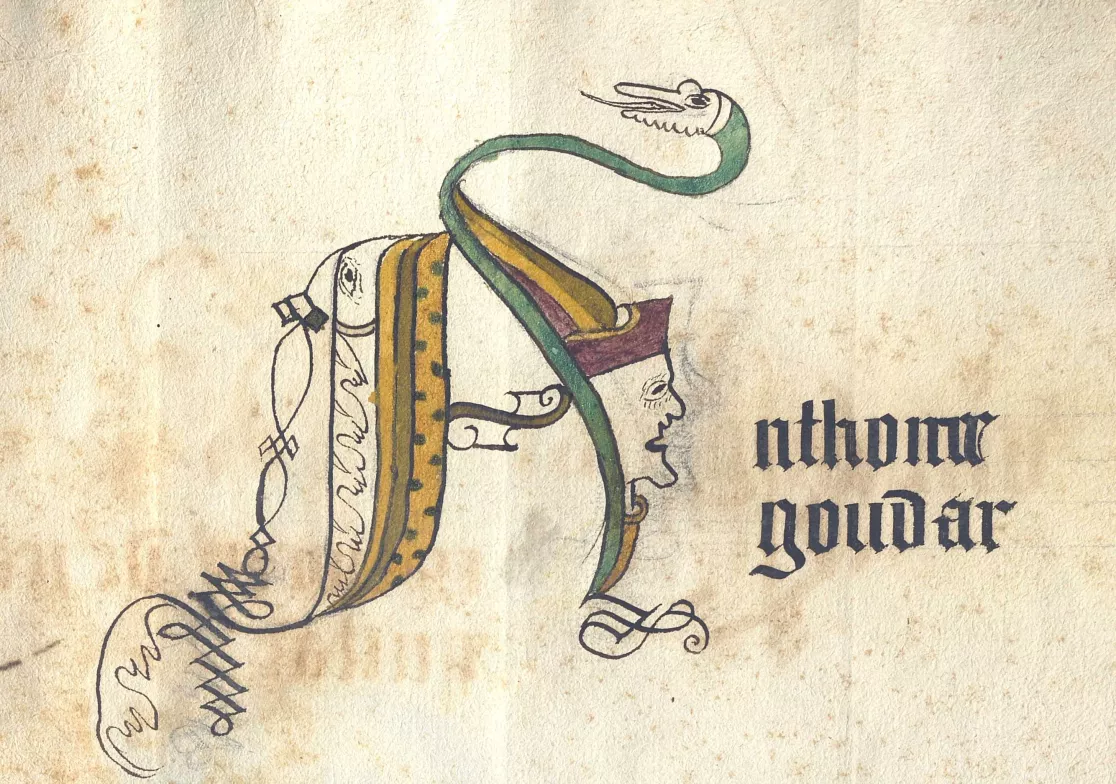 Anthoine
goudar